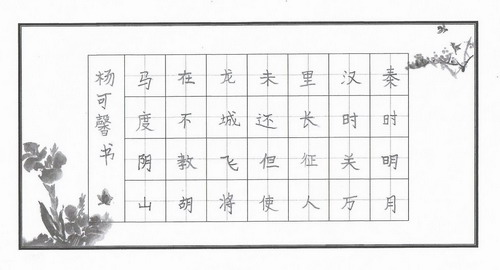 秦时明月
汉时关万
里长征人
未还但使
龙城飞将
在不教胡
马度阴山
杨可馨书